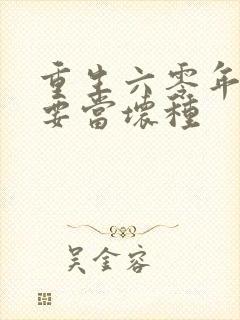 重生六零年
要當壞種
吳金容